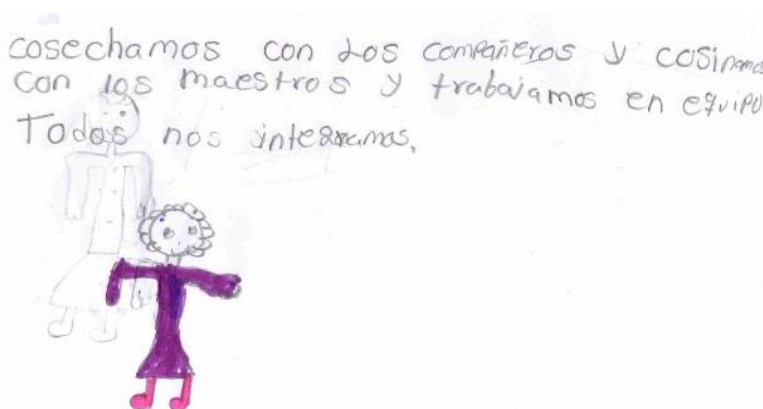 cosechamos con los compañeros y cosinamos
con los maestros y trabajamos en equipo
Todos nos integramos.